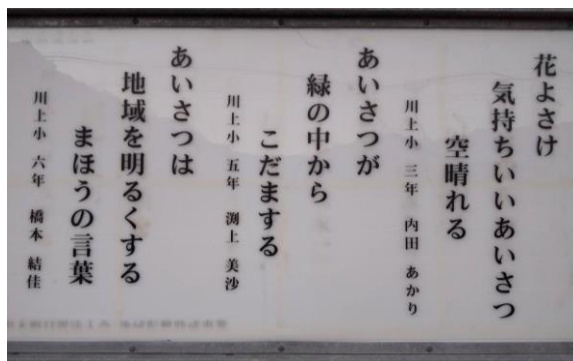 花よさけ
気持ちいいあいさつ
空晴れる
川上小 三年 内田 あかり
あいさつが
緑の中から
こだまする
川上小 五年 渕上 美沙
あいさつは
地域を明るくする
まほうの言葉
川上小 六年 橋本 結佳